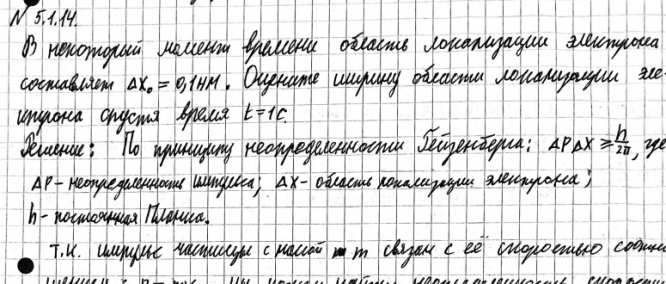 N 5.1.14.
В некоторый момент времени область локализации электрона
составляет ΔX₀ = 0,1нм. Оцените ширину области локализации эле-
ктрона спустя время t=1с.
Решение: По принципу неопределенности Гейзенберга: ΔPΔX ≥ h/2π, где
ΔP - неопределенность импульса; ΔX - область локализации электрона;
h - постоянная Планка.
Т.К. импульс частицы с массой m связан с её скоростью соотно